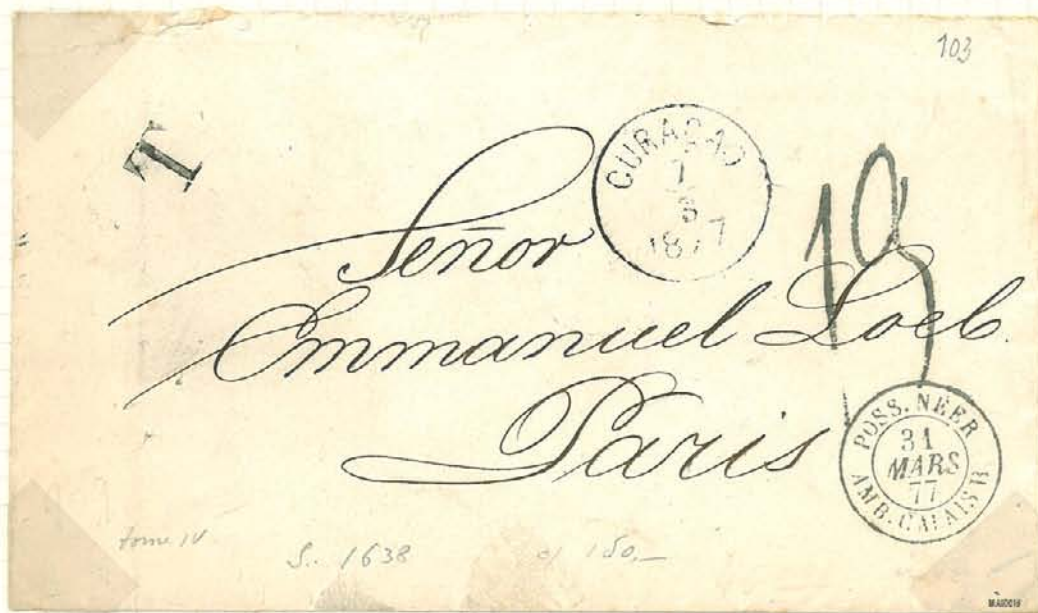 103
T
CURAÇAO
7
3
1877
Señor
Emmanuel Loeb.
Paris
POSS. NÉER
31
MARS
77
AMB. CALAIS B
tome IV
S.. 1638
150,-